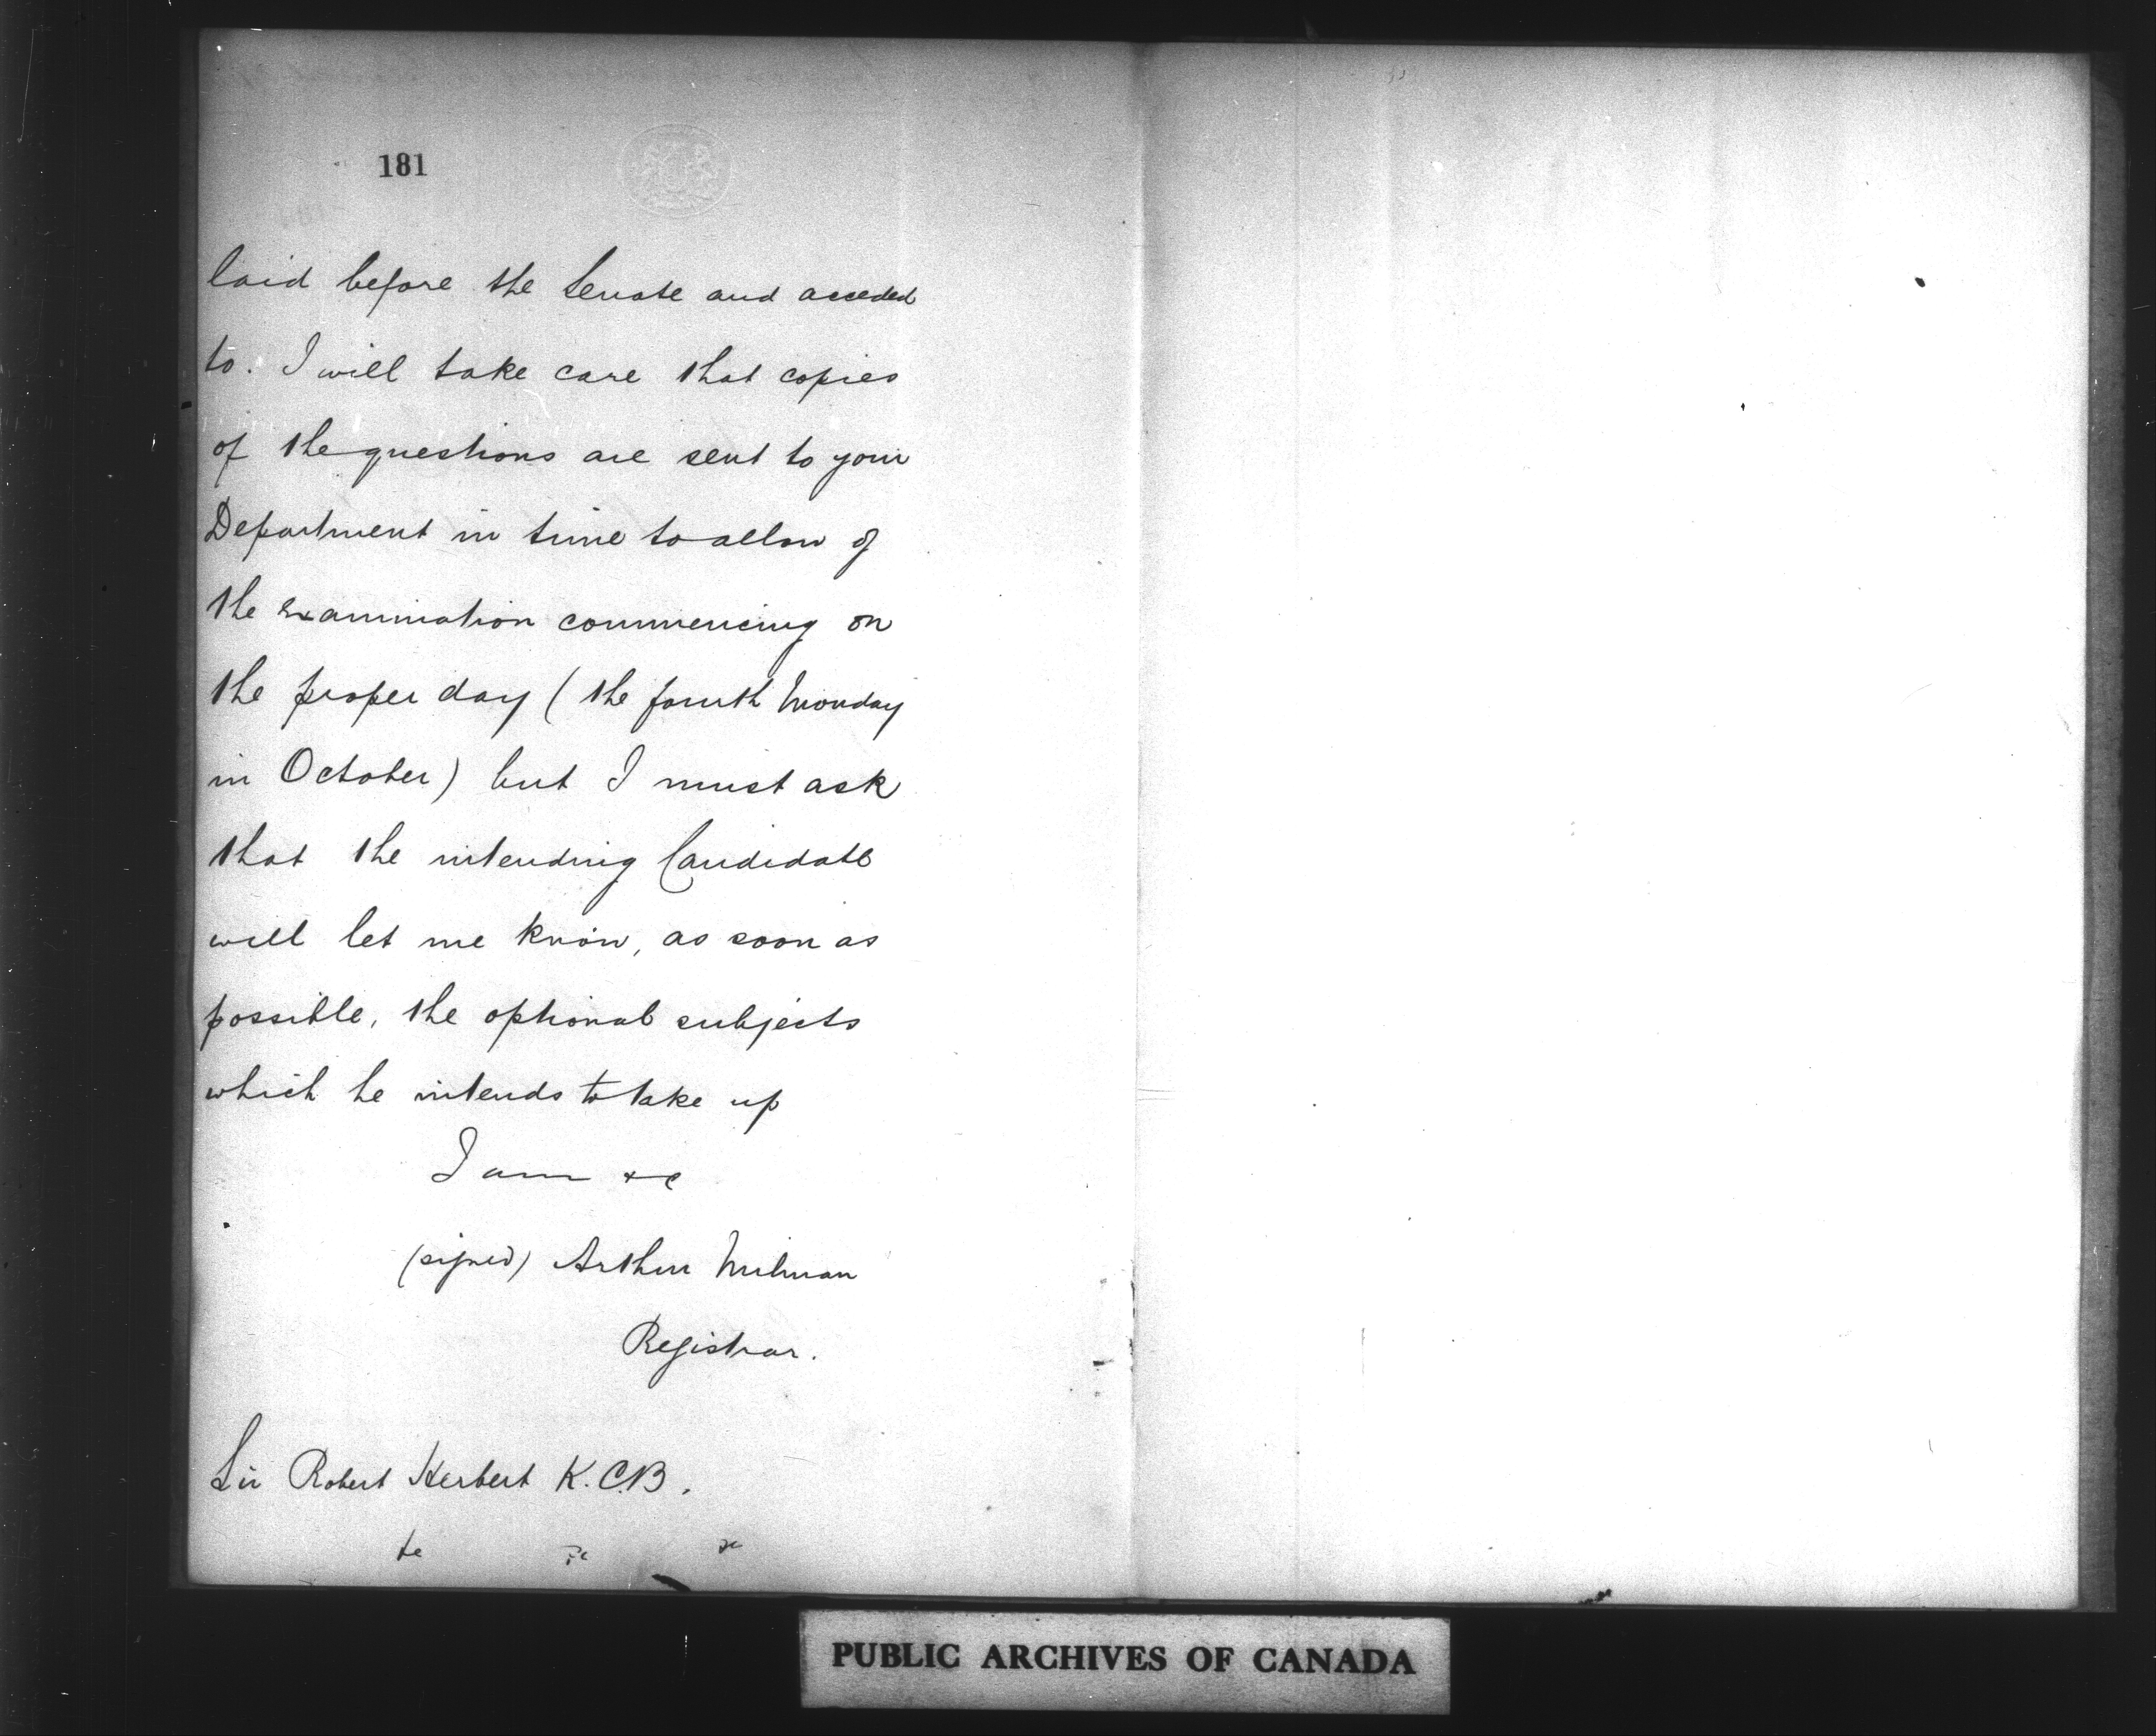 181
laid before the Senate and acceded
to. I will take care that copies
of the questions are sent to your
Department in time to allow of
the examination commencing on
the proper day (the fourth Monday
in October) but I must ask
that the intending Candidate
will let me know, as soon as
possible, the optional subjects
which he intends to take up
I am &c
(signed) Arthur Milman
Registrar.
Sir Robert Herbert K.C.B.
&c &c &c
PUBLIC ARCHIVES OF CANADA